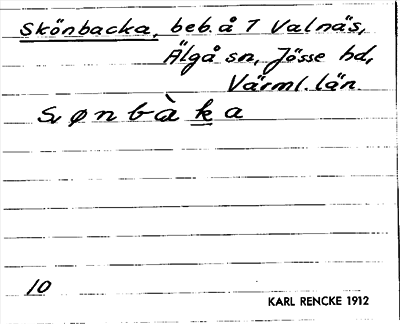 Skönbacka, beb. å 7 Valnäs,
Älgå sn, Jösse hd,
Värml. län.
sønbàka
10
KARL RENCKE 1912